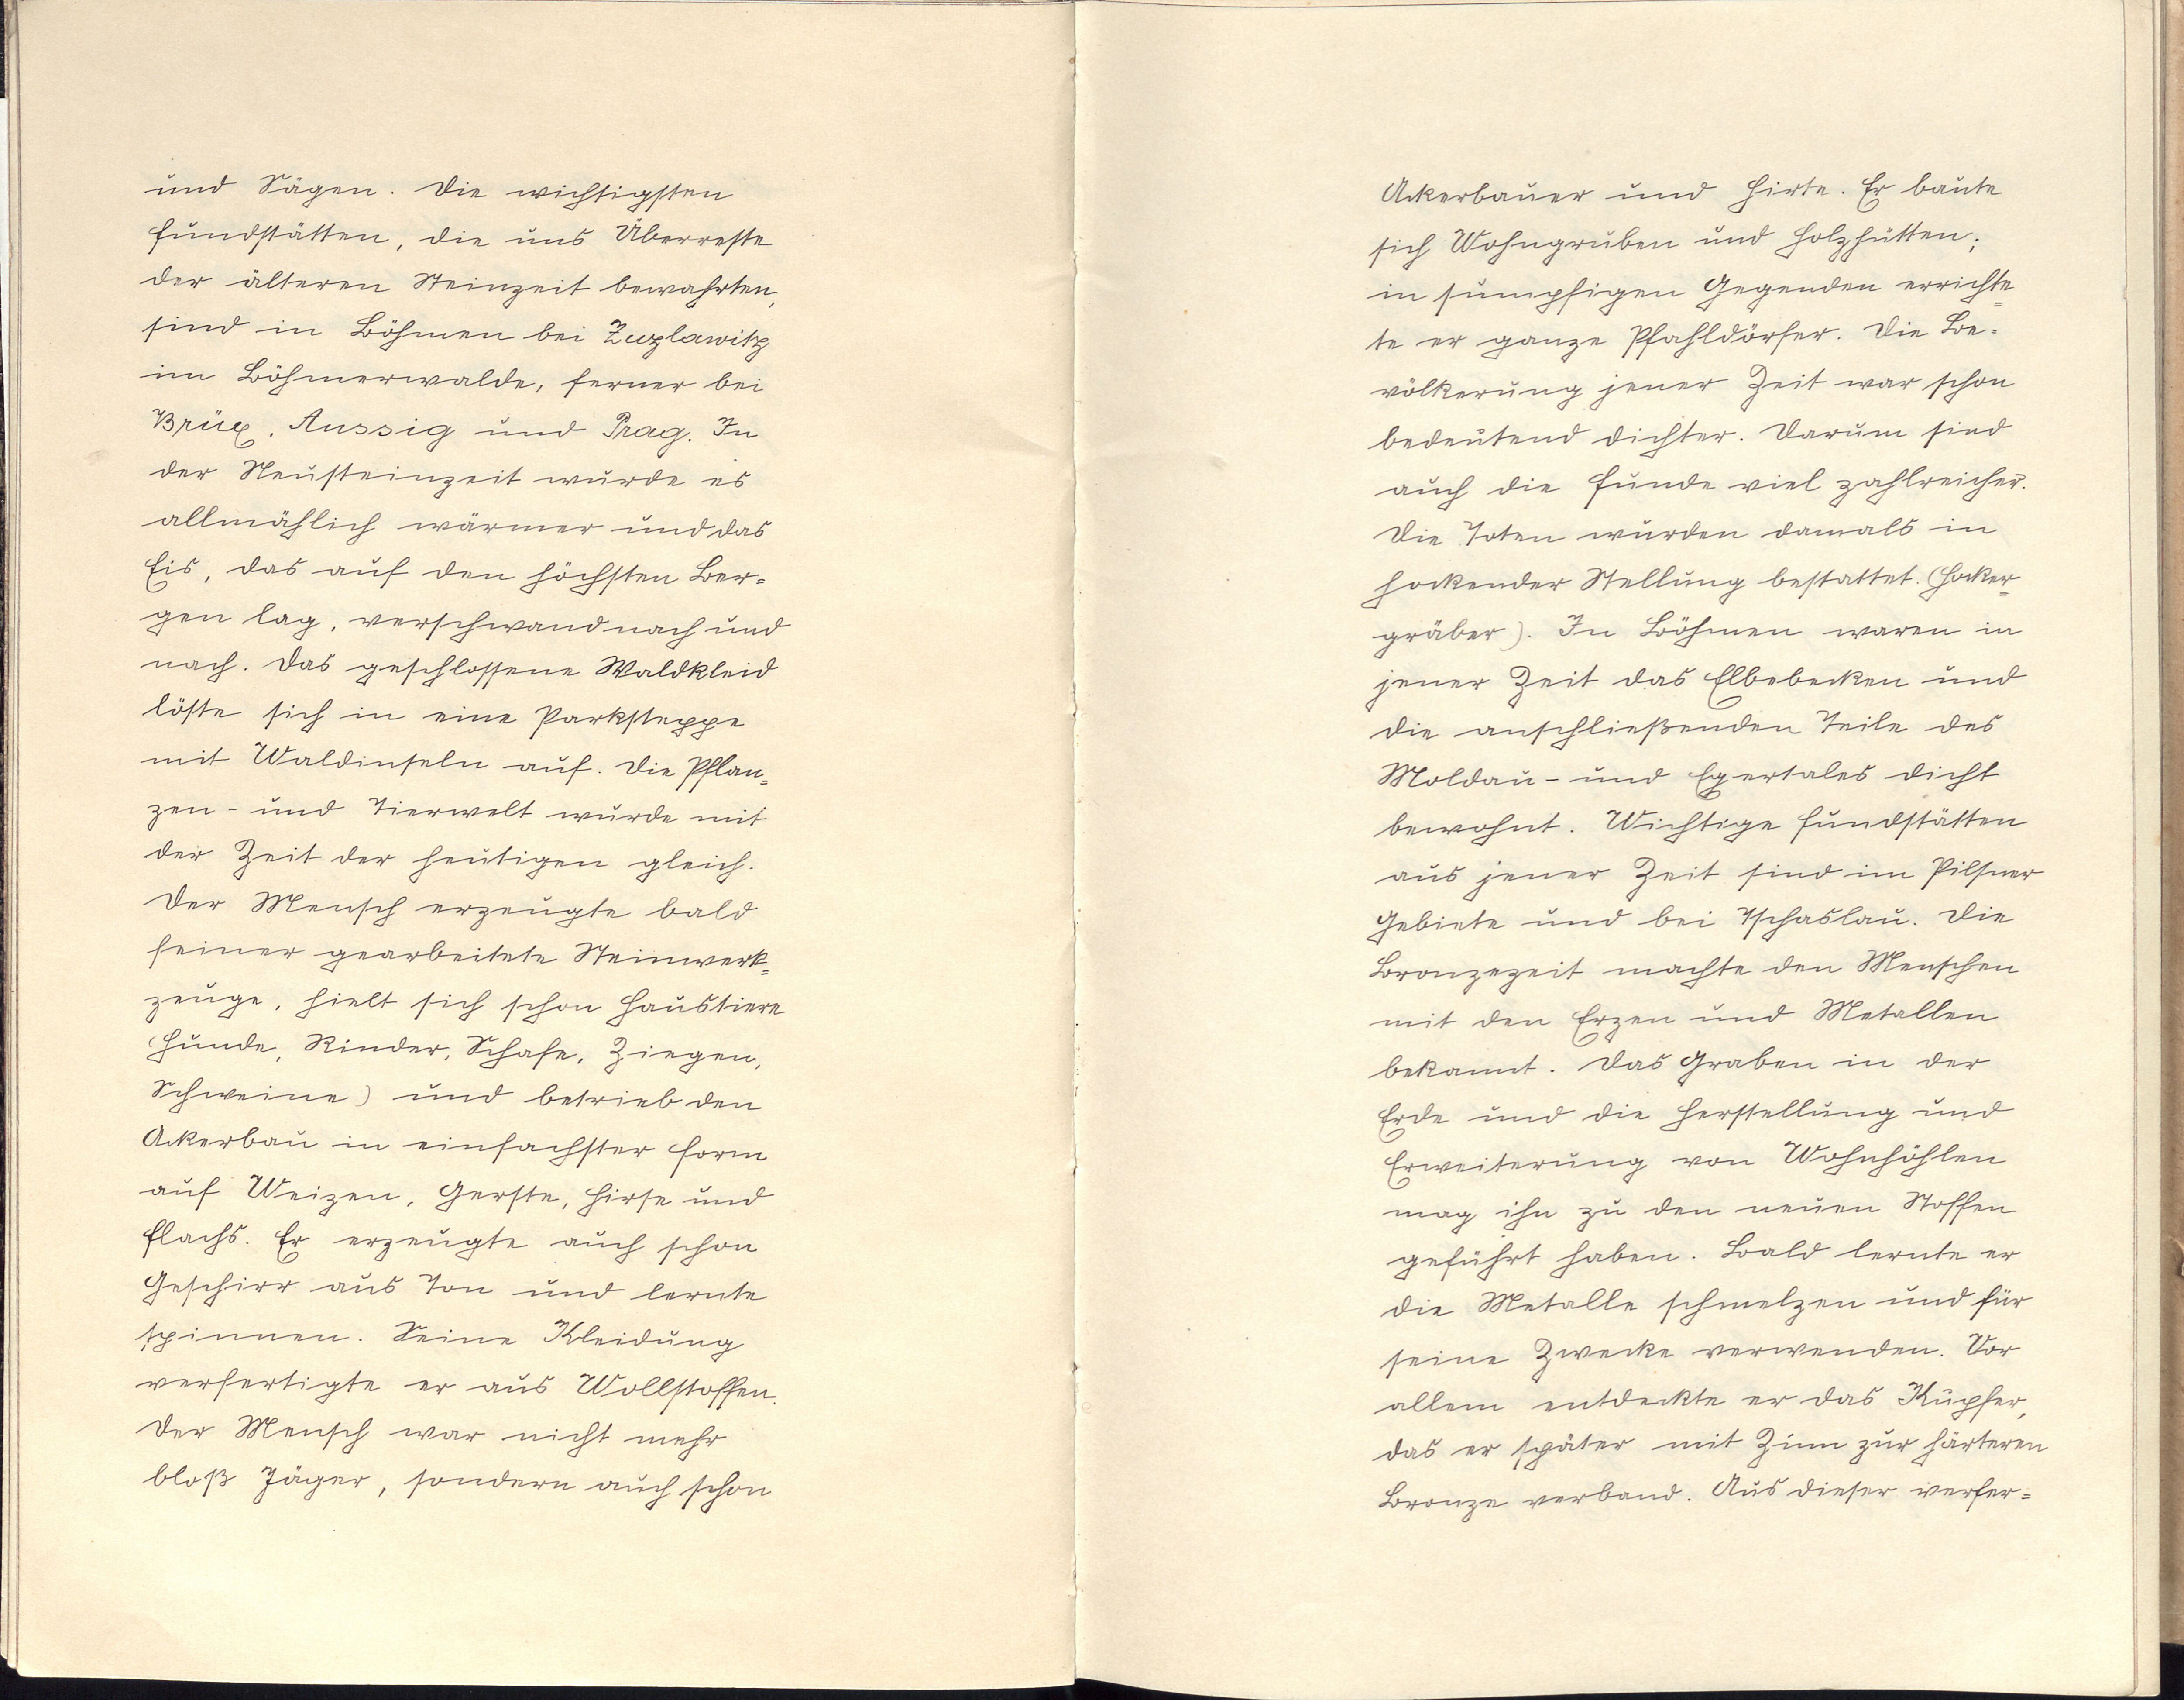 und Sägen. Die wichtigsten
Fundstätten, die uns Überreste
der älteren Steinzeit bewahrten,
sind in Böhmen bei Zuzlawitz
im Böhmerwalde, ferner bei
Brüx, Aussig und Prag. In
der Neusteinzeit wurde es
allmählich wärmer und das
Eis, das auf den höchsten Ber=
gen lag, verschwand nach und
nach. Das geschlossene Waldkleid
löste sich in eine Parksteppe
mit Waldinseln auf. Die Pflan=
zen- und Tierwelt wurde mit
der Zeit der heutigen gleich.
Der Mensch erzeugte bald
feiner gearbeitete Steinwerk=
zeuge, hielt sich schon Haustiere
(Hunde, Rinder, Schafe, Ziegen,
Schweine) und betrieb den
Ackerbau in einfachster Form
auf Weizen, Gerste, Hirse und
Flachs. Er erzeugte auch schon
Geschirr aus Ton und lernte
spinnen. Seine Kleidung
verfertigte er aus Wollstoffen.
Der Mensch war nicht mehr
bloß Jäger, sondern auch schon
Ackerbauer und Hirte. Er baute
sich Wohngruben und Holzhütten;
in sumpfigen Gegenden errichte=
te er ganze Pfahldörfer. Die Be=
völkerung jener Zeit war schon
bedeutend dichter. Darum sind
auch die Funde viel zahlreicher.
Die Toten wurden damals in
hockender Stellung bestattet. (Hocker=
gräber). In Böhmen waren in
jener Zeit das Elbebecken und
die anschließenden Teile des
Moldau- und Egertales dicht
bewohnt. Wichtige Fundstätten
aus jener Zeit sind im Pilsner
Gebiete und bei Tschaslau. Die
Bronzezeit machte den Menschen
mit den Erzen und Metallen
bekannt. Das Graben in der
Erde und die Herstellung und
Erweiterung von Wohnhöhlen
mag ihn zu den neuen Stoffen
geführt haben. Bald lernte er
die Metalle schmelzen und für
seine Zwecke verwenden. Vor
allem entdeckte er das Kupfer,
das er später mit Zinn zur härteren
Bronze verband. Aus dieser verfer=